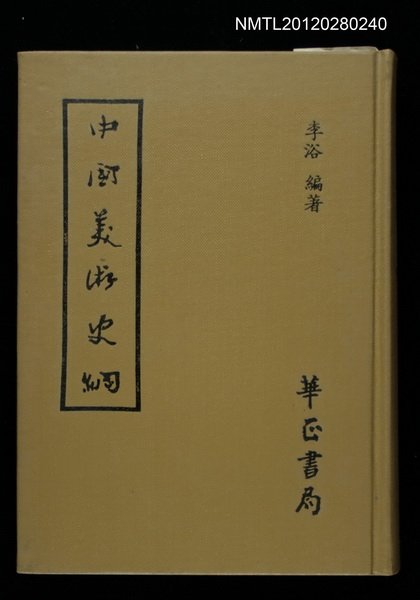 NMTL20120280240
李浴 編著
中国美術史綱
華正書局